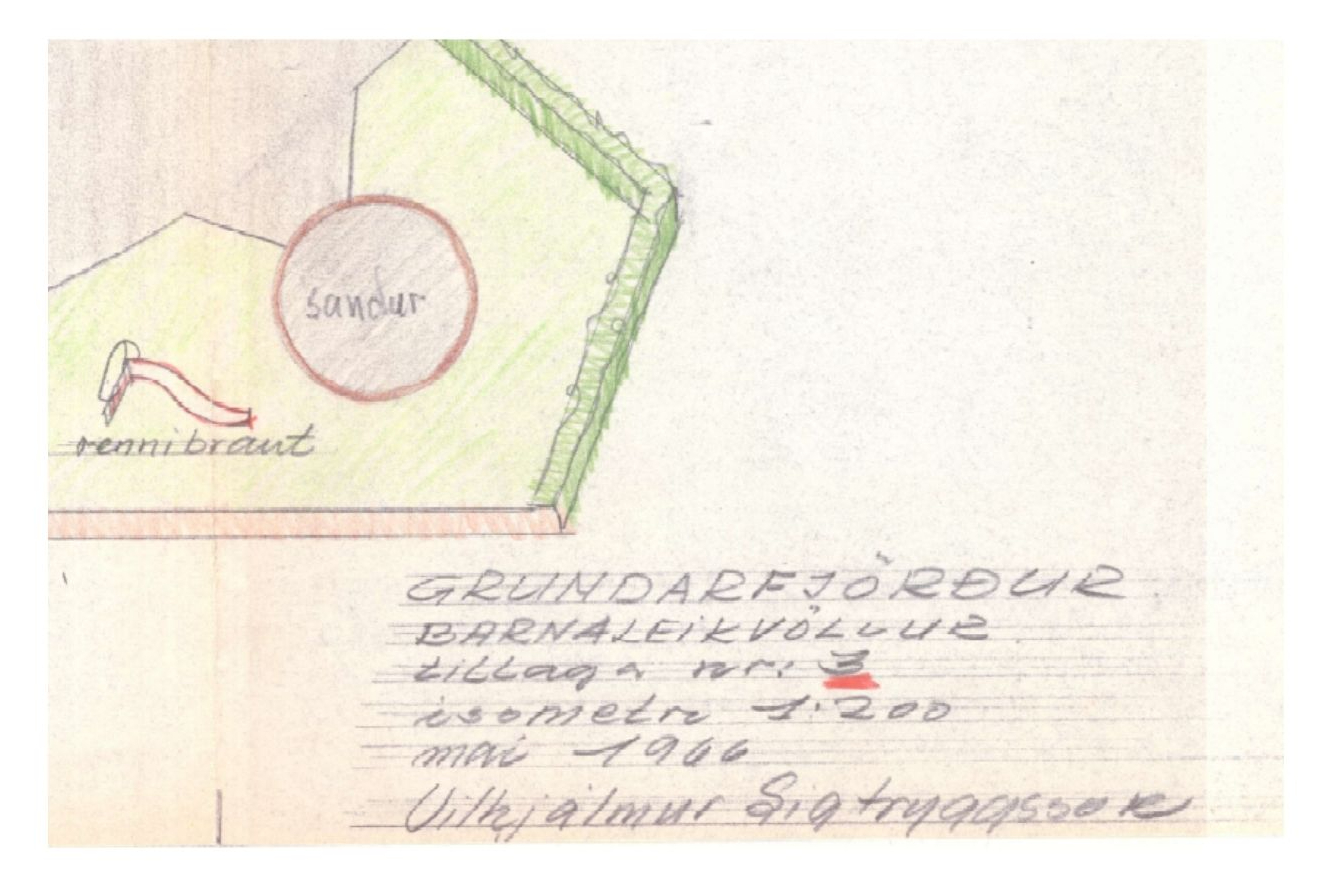 sandur
rennibraut
GRUNDARFJÖRÐUR
BARNALEIKVÖLLUR
tillaga nr: 3
isometri 1:200
mai 1966
Vilhjálmur Sigtryggsson